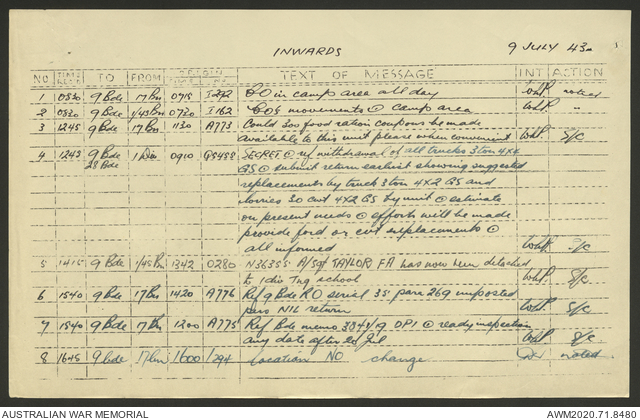 INWARDS 9 JULY 43.
NO TIME RECD TO FROM ORIGIN TIME NO. TEXT OF MESSAGE INT ACTION
1 0830 9 Bde 17 Bn 0915 I292 CO in camp area all day WHP. noted
2 0830 9 Bde 1/45 Bn 0730 I162 COs movements @ camp area WHP. "
3 1245 9 Bde 17 Bn 1130 A773 Could 300 food ration coupons be made
available to this unit please when convenient WHP. S/c
4 1245 9 Bde 1 Div 0910 G5458 SECRET @ withdrawal of all trucks 3 ton 4X4
28 Bde GS @ submit return earliest showing suggested
replacements by truck 3 ton 4X2 GS and
lorries 30 cwt 4X2 GS by unit @ estimate
on present needs @ efforts will be made
provide ford or cvt replacements @
all informed WHP. S/c
5 1415 9 Bde 1/45 Bn 1342 0280 N36355 A/Sgt TAYLOR FA has now been detached
to 1 Div Tng school WHP. S/c
6 1540 9 Bde 17 Bn 1420 A776 Ref 9 Bde RO serial 35 para 269 unposted
pers NIL return WHP. S/c
7 1540 9 Bde 17 Bn 1200 A775 Ref Bde memo DPI @ ready inspection
any date after 20 Jul WHP. S/c
8 1645 9 bde 17 bn 1600 I294 Location NO change noted
AUSTRALIAN WAR MEMORIAL AWM2020.71.8480